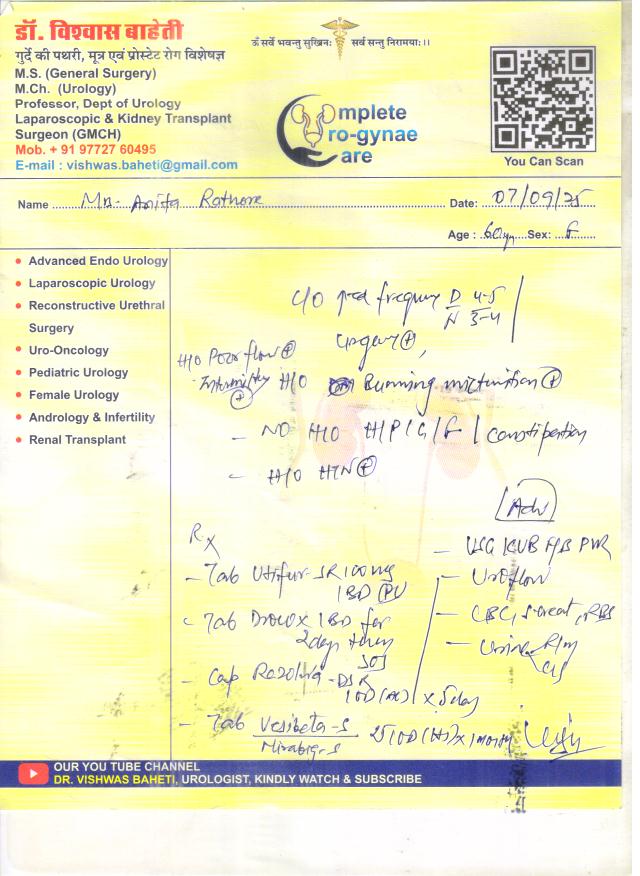 डॉ. विश्वास बाहेती
गुर्दे की पथरी, मूत्र एवं प्रोस्टेट रोग विशेषज्ञ
M.S. (General Surgery)
M.Ch. (Urology)
Professor, Dept of Urology
Laparoscopic & Kidney Transplant
Surgeon (GMCH)
Mob. + 91 97727 60495
E-mail : vishwas.baheti@gmail.com
ॐ सर्वे भवन्तु सुखिनः सर्व सन्तु निरामयाः।।
Complete
Uro-gynae
Care
You Can Scan
Name Mrs. Anita Rathore Date: 07/09/25
Age : 60yr Sex: F
Advanced Endo Urology
Laparoscopic Urology
Reconstructive Urethral
Surgery
Uro-Oncology
Pediatric Urology
Female Urology
Andrology & Infertility
Renal Transplant
C/O frequency D 4-5
N 3-4
Urgency (+),
H/O Poor flow (+)
(+) H/O Burning micturition (+)
- NO H/O H/P/G/F / constipation
- H/O HTN (+)
Adv
- USG KUB PVR
- Uroflow
- CBC, S.creat, RBS
- Urine R/m
C/S
Rx
- Tab SR 100mg
1 BD
- Tab 1 BD for
2days then
SOS
- Cap -DSR
1 OD x 5day
- Tab Vesibeta-S
Mirabig-S
25 1 OD (HS) x 1 month
OUR YOU TUBE CHANNEL
DR. VISHWAS BAHETI, UROLOGIST, KINDLY WATCH & SUBSCRIBE